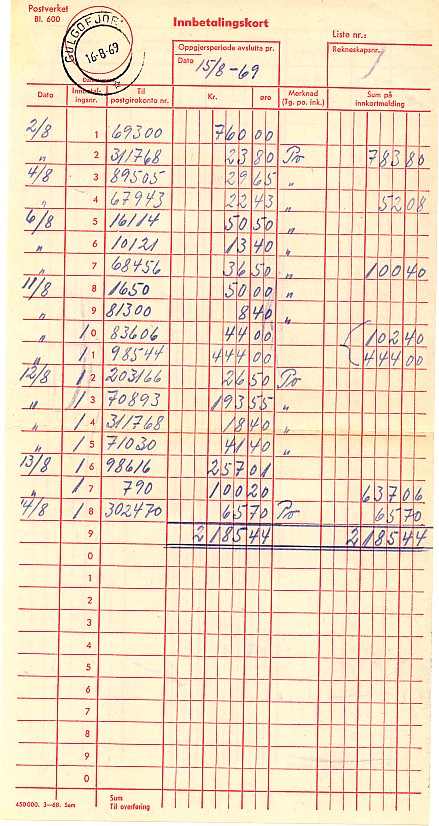 Postverket
Bl. 600
Innbetalingskort
GULGOFJORD
16-8-69
Liste nr.:
Oppgjersperiode avslutta pr.
Rekneskapsnr.
Dato 15/8-69
Dato Innbetalingsnr. Til postgirokonto nr. Kr. øre Merknad (Tg. po. ink.) Sum på innkortmelding
2/8 1 69300 760 00
" 2 311768 23 80 Po 783 80
4/8 3 89505 29 65 "
" 4 67943 22 43 " 52 08
6/8 5 16114 50 50 "
" 6 10121 13 40 "
" 7 68456 36 50 " 100 40
11/8 8 1650 50 00 "
" 9 81300 8 40 "
" 10 83606 44 00 102 40
" 11 98544 444 00 444 00
12/8 12 203166 26 50 Po
" 13 70893 193 55 "
" 14 311768 18 40 "
" 15 71030 41 40 "
13/8 16 98616 257 01
" 17 790 100 20 637 06
14/8 18 302470 65 70 Po 65 70
9 2185 44 2185 44
0
1
2
3
4
5
6
7
8
9
0
450000. 3-68. Sem
Sum
Til overføring